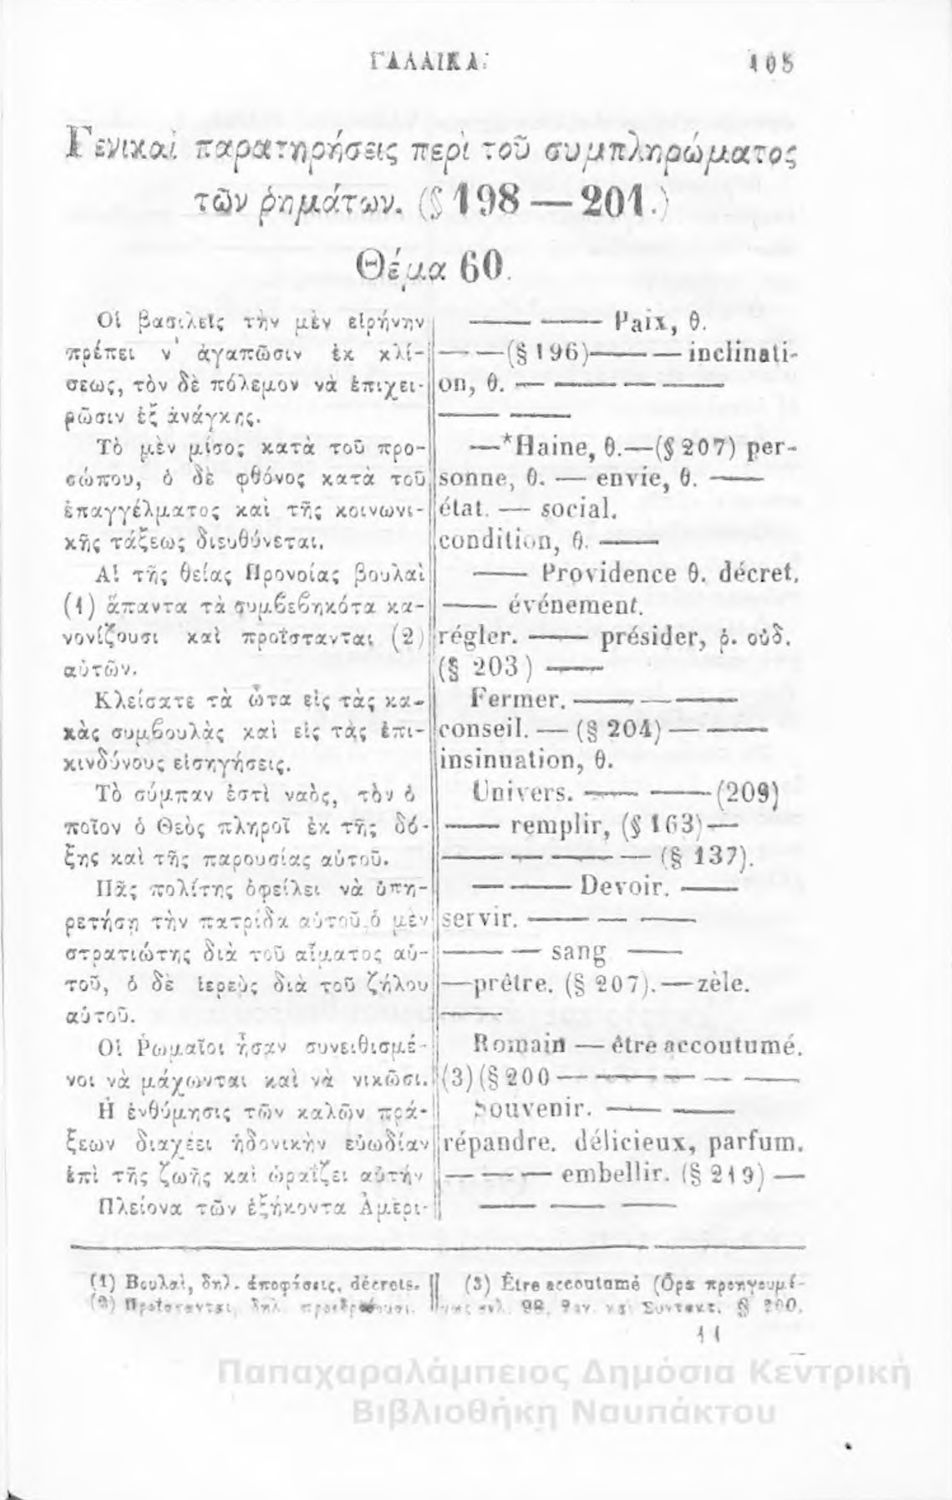 ΓΑΛΛΙΚΑ. 105
Γενικαὶ παρατηρήσεις περὶ τοῦ συμπληρώματος
τῶν ῥημάτων. (§ 198 — 201.)
Θέμα 60.
Οἱ βασιλεῖς τὴν μὲν εἰρήνην
πρέπει ν' ἀγαπῶσιν ἐκ κλί-
σεως, τὸν δὲ πόλεμον νὰ ἐπιχει-
ρῶσιν ἐξ ἀνάγκης.
Τὸ μὲν μίσος κατὰ τοῦ προ-
σώπου, ὁ δὲ φθόνος κατὰ τοῦ
ἐπαγγέλματος καὶ τῆς κοινωνι-
κῆς τάξεως διευθύνεται.
Αἱ τῆς θείας Προνοίας βουλαὶ
(1) ἅπαντα τὰ συμβεβηκότα κα-
νονίζουσι καὶ προΐστανται (2)
αὐτῶν.
Κλείσατε τὰ ὦτα εἰς τὰς κα-
κὰς συμβουλὰς καὶ εἰς τὰς ἐπι-
κινδύνους εἰσηγήσεις.
Τὸ σύμπαν ἐστὶ ναὸς, τὸν ὁ
ποῖον ὁ Θεὸς πληροῖ ἐκ τῆς δό-
ξης καὶ τῆς παρουσίας αὐτοῦ.
Πᾶς πολίτης ὀφείλει νὰ ὑπη-
ρετήσῃ τὴν πατρίδα αὐτοῦ, ὁ μὲν
στρατιώτης διὰ τοῦ αἵματος αὐ-
τοῦ, ὁ δὲ ἱερεὺς διὰ τοῦ ζήλου
αὐτοῦ.
Οἱ Ῥωμαῖοι ἦσαν συνειθισμέ-
νοι νὰ μάχωνται καὶ νὰ νικῶσι.
Ἡ ἐνθύμησις τῶν καλῶν πρά-
ξεων διαχέει ἡδονικὴν εὐωδίαν
ἐπὶ τῆς ζωῆς καὶ ὡραΐζει αὐτήν
Πλείονα τῶν ἑξήκοντα Ἀμερι-
—— —— Paix, θ.
—— (§ 196) —— — inclinati-
on, θ. — —— — ——
—— ——
— *Haine, θ. — (§ 207) per-
sonne, θ. — envie, θ. ——
état. — social.
condition, θ. ——
—— Providence θ. décret.
—— événement.
régler. —— présider, ῥ. οὐδ.
(§ 203) ——
Fermer. —— — ——
conseil. — (§ 204) — ——
insinuation, θ.
Univers. —— —— (209)
—— remplir, (§ 163) —
—— — —— — (§ 137).
— —— Devoir. ——
servir. —— — ——
—— — sang ——
— prêtre. (§ 207). — zèle.
——
Romain — être accoutumé.
(3) (§ 200 — —— — — ——
Souvenir. —— ——
répandre. délicieux, parfum.
— — — embellir. (§ 219) —
—— — ——
(1) Βουλαὶ, δηλ. ἀποφάσεις, décrets.
(2) Προΐστανται, δηλ. προεδρεύουσι.
(3) Être accoutumé (Ὅρα προηγουμέ-
νης σελ. 98, 9ον καὶ Συντακτ. § 200.
11
Παπαχαραλάμπειος Δημόσια Κεντρική
Βιβλιοθήκη Ναυπάκτου